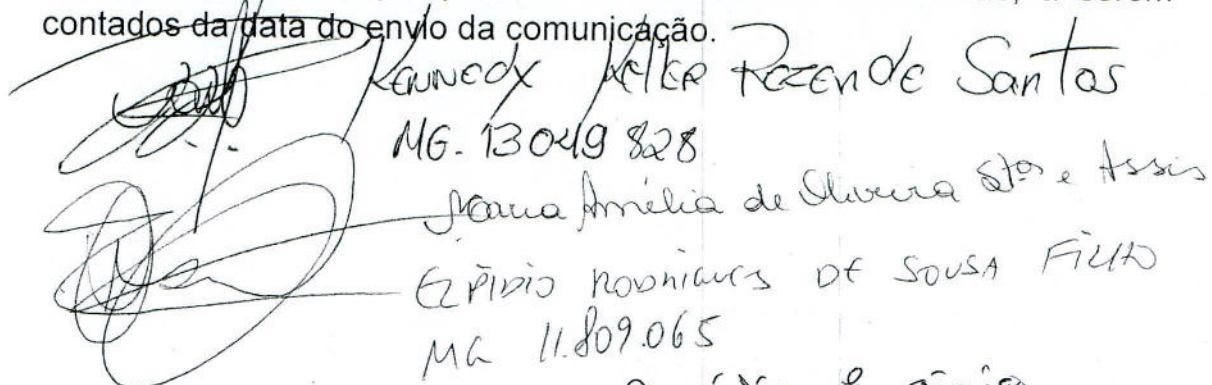 contados da data do envio da comunicação.
Kennedy Keller Rezende Santos
MG. 13049 828
Maria Amélia de Oliveira Stos e Assis
ELPÍDIO RODRIGUES DE SOUSA FILHO
MG 11.809.065